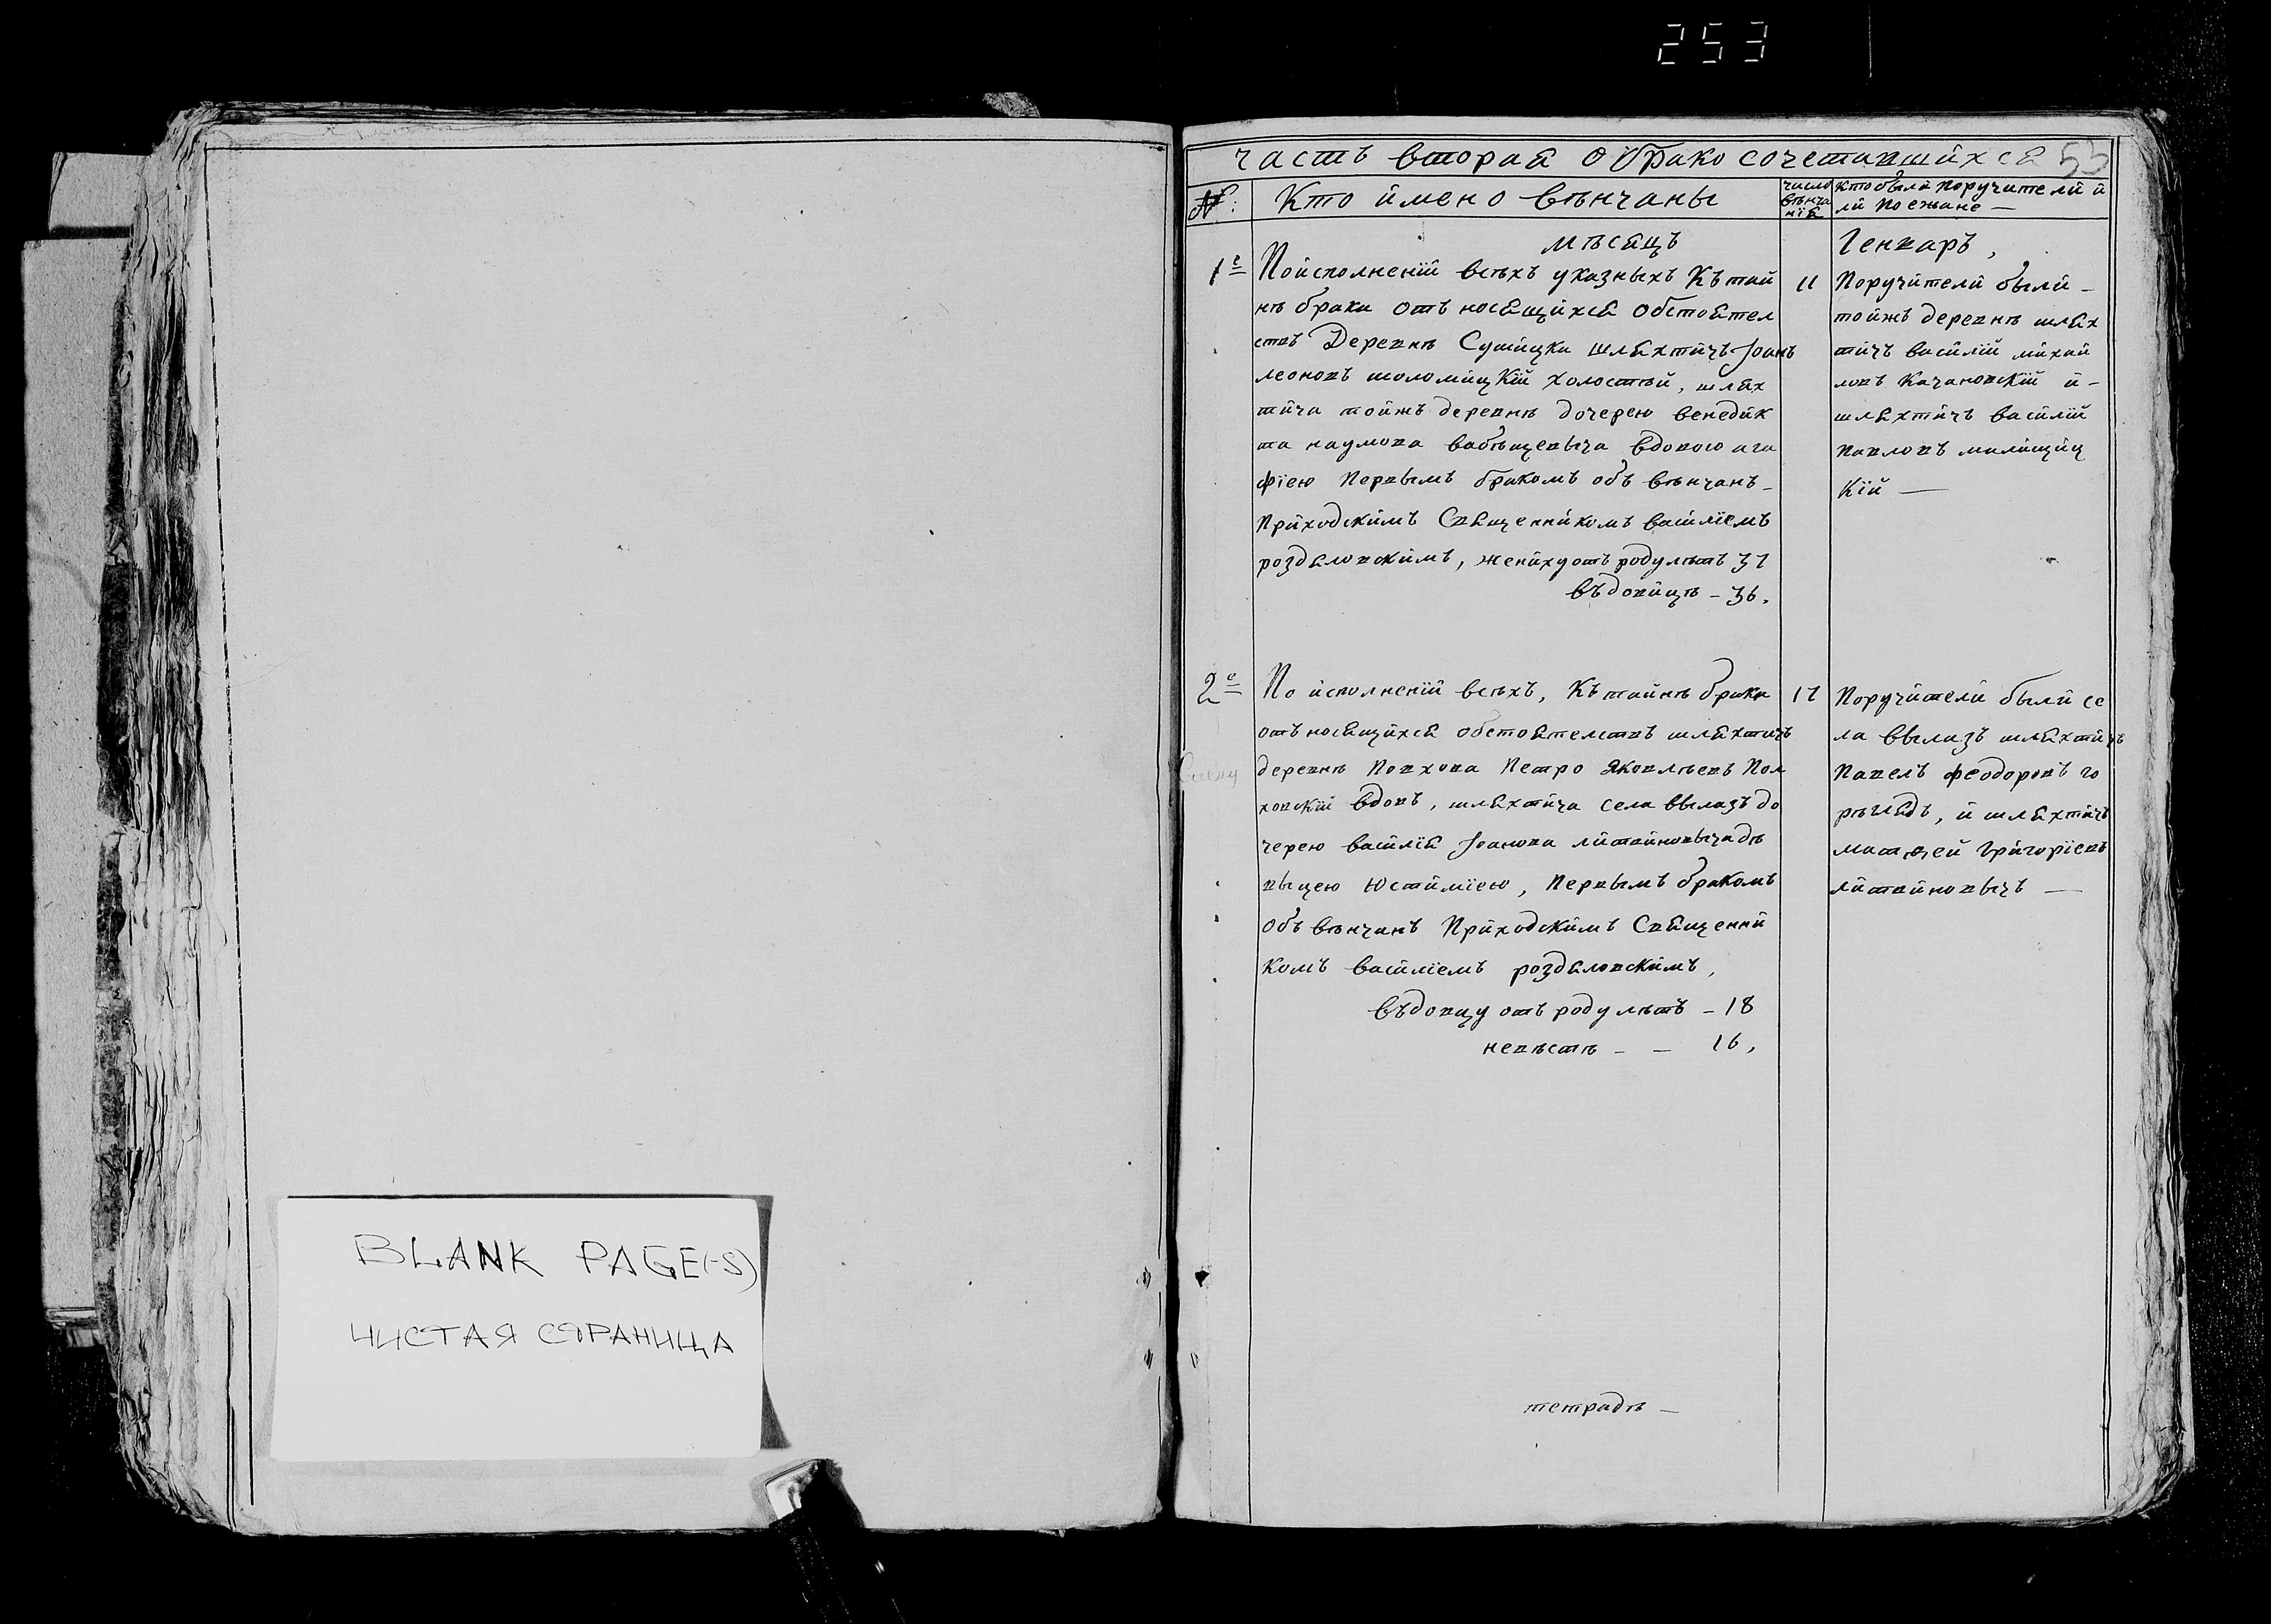 253
BLANK PAGE(-S)
ЧИСТАЯ СТРАНИЦА
часть вторая о бракосочетавшихся 53
№: Кто имено вѣнчаны
число вѣнча нія
кто были поручители и
ли поежане —
мѣсяцъ Генварь,
1е
Поисполненіи всѣхъ указныхъ Къ тай
нѣ брака отъ носящихся обстоятел
ствъ Деревнѣ Сушицка шляхтичъ Іоанъ
леоновъ шоломицкій холостый, шлях
тича тойжъ деревнѣ дочерею венедик
та наумова вабѣщевыча вдовою ага
фіею первымъ бракомъ объ вѣнчанъ -
Приходскимъ Священникомъ василіемъ
роздяловскимъ, женихуотъ родулѣтъ 31
въдовицѣ - 36.
11
Поручители были -
тойжъ деревнѣ шлях
тичъ василій михай
ловъ Качановскій и -
шляхтичъ василій
павловъ малищиц
кій —
2е
По исполненіи всѣхъ, Къ тайнѣ брака
отъ носящихся обстоятелствъ шляхтичъ
деревнѣ Повхова Петро Яковлѣевъ Пол
ховскій вдовъ, шляхтича села вылазъ до
черею василія Іоанова литвиновычадѣ
выцею Юстиміею, первымъ бракомъ
Объ вѣнчанъ Приходскимъ Священни
комъ василіемъ роздяловскимъ,
въдовцу отъ роду лѣтъ - 18
невѣстѣ - - 16,
17
Поручители были се
ла вылазъ шляхтичъ
Павелъ феодоровъ го
рѣглядъ, и шляхтичъ
матѳей григоріевъ
литвиновычъ —
тетрадѣ —